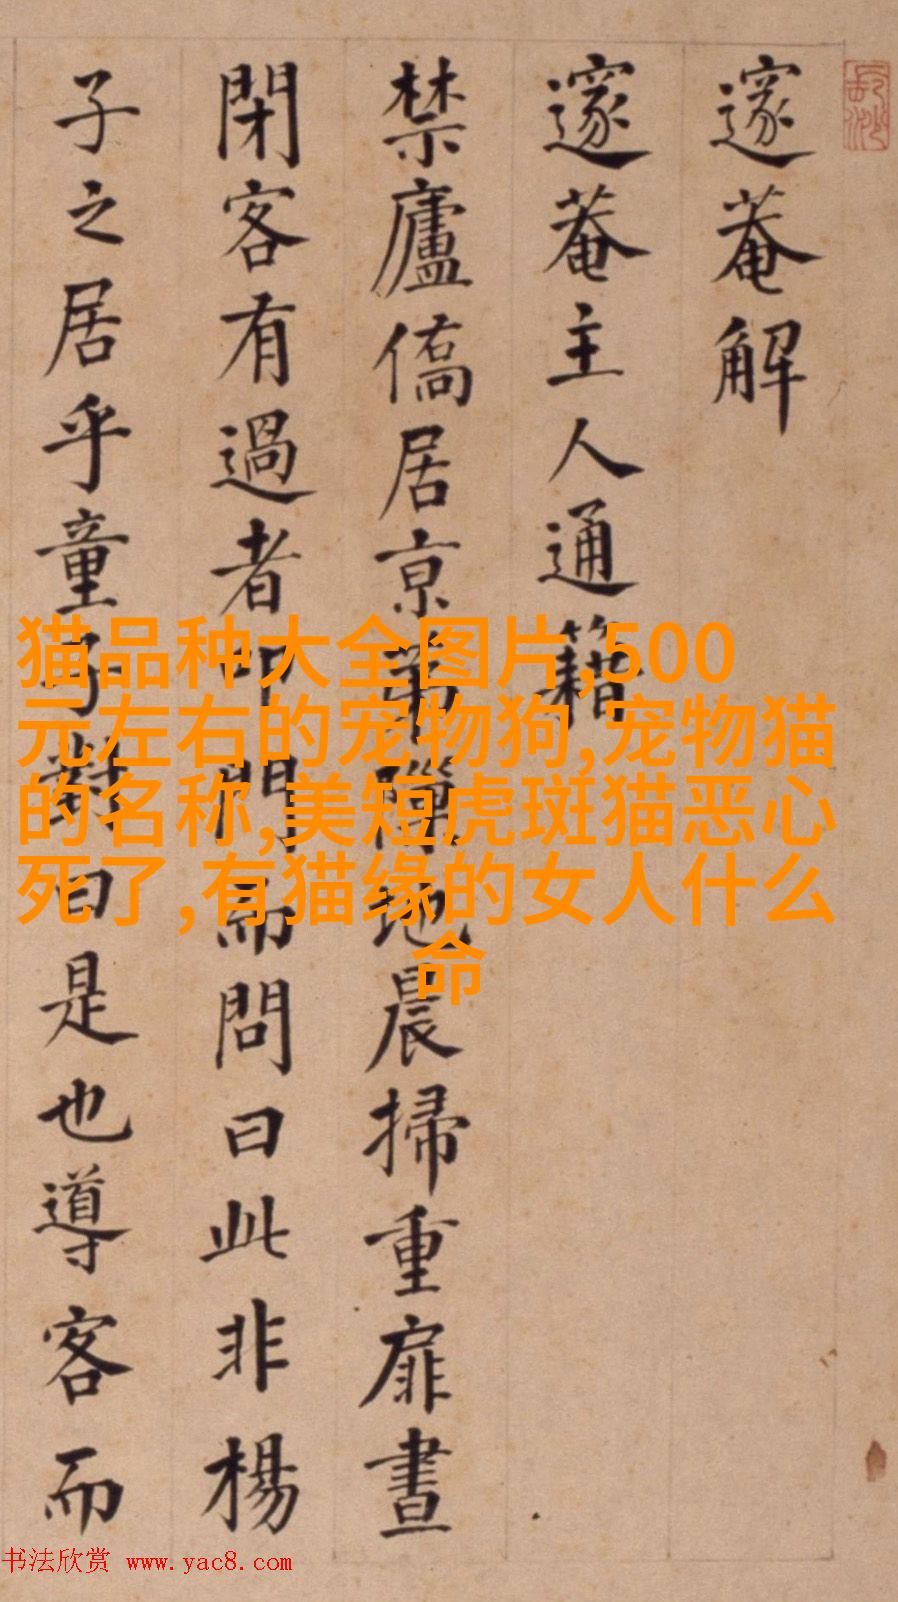 邃菴解
邃菴主人通籍
禁廬僑居京第地晨掃重扉晝
閉客有過者叩門而問曰此非楊
子之居乎童子對曰是也導客而
猫品种大全图片,500
元左右的宠物狗,宠物猫
的名称,美短虎斑猫恶心
死了,有猫缘的女人什么
命
书法欣赏 www.yac8.com